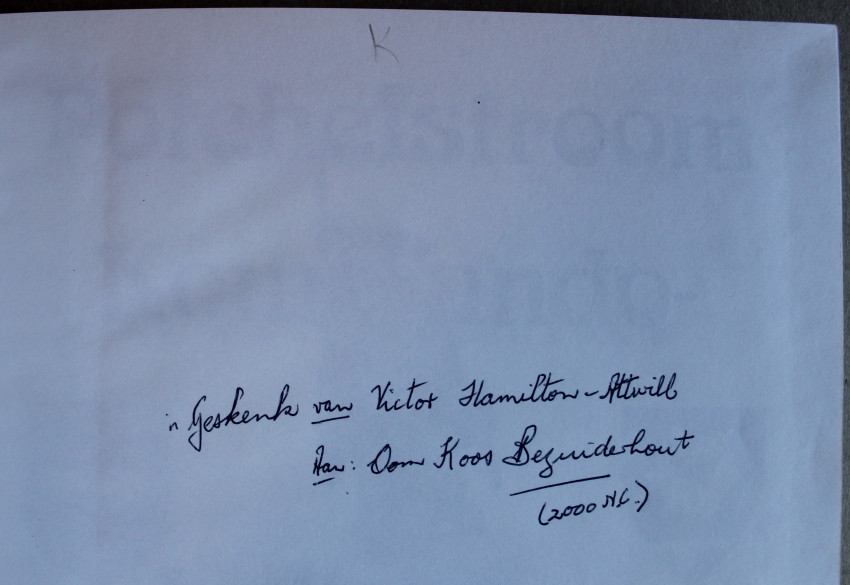 K
'n Geskenk van Victor Hamilton-Attwill
Aan: Oom Koos Bezuidenhout
(2000 N.C.)